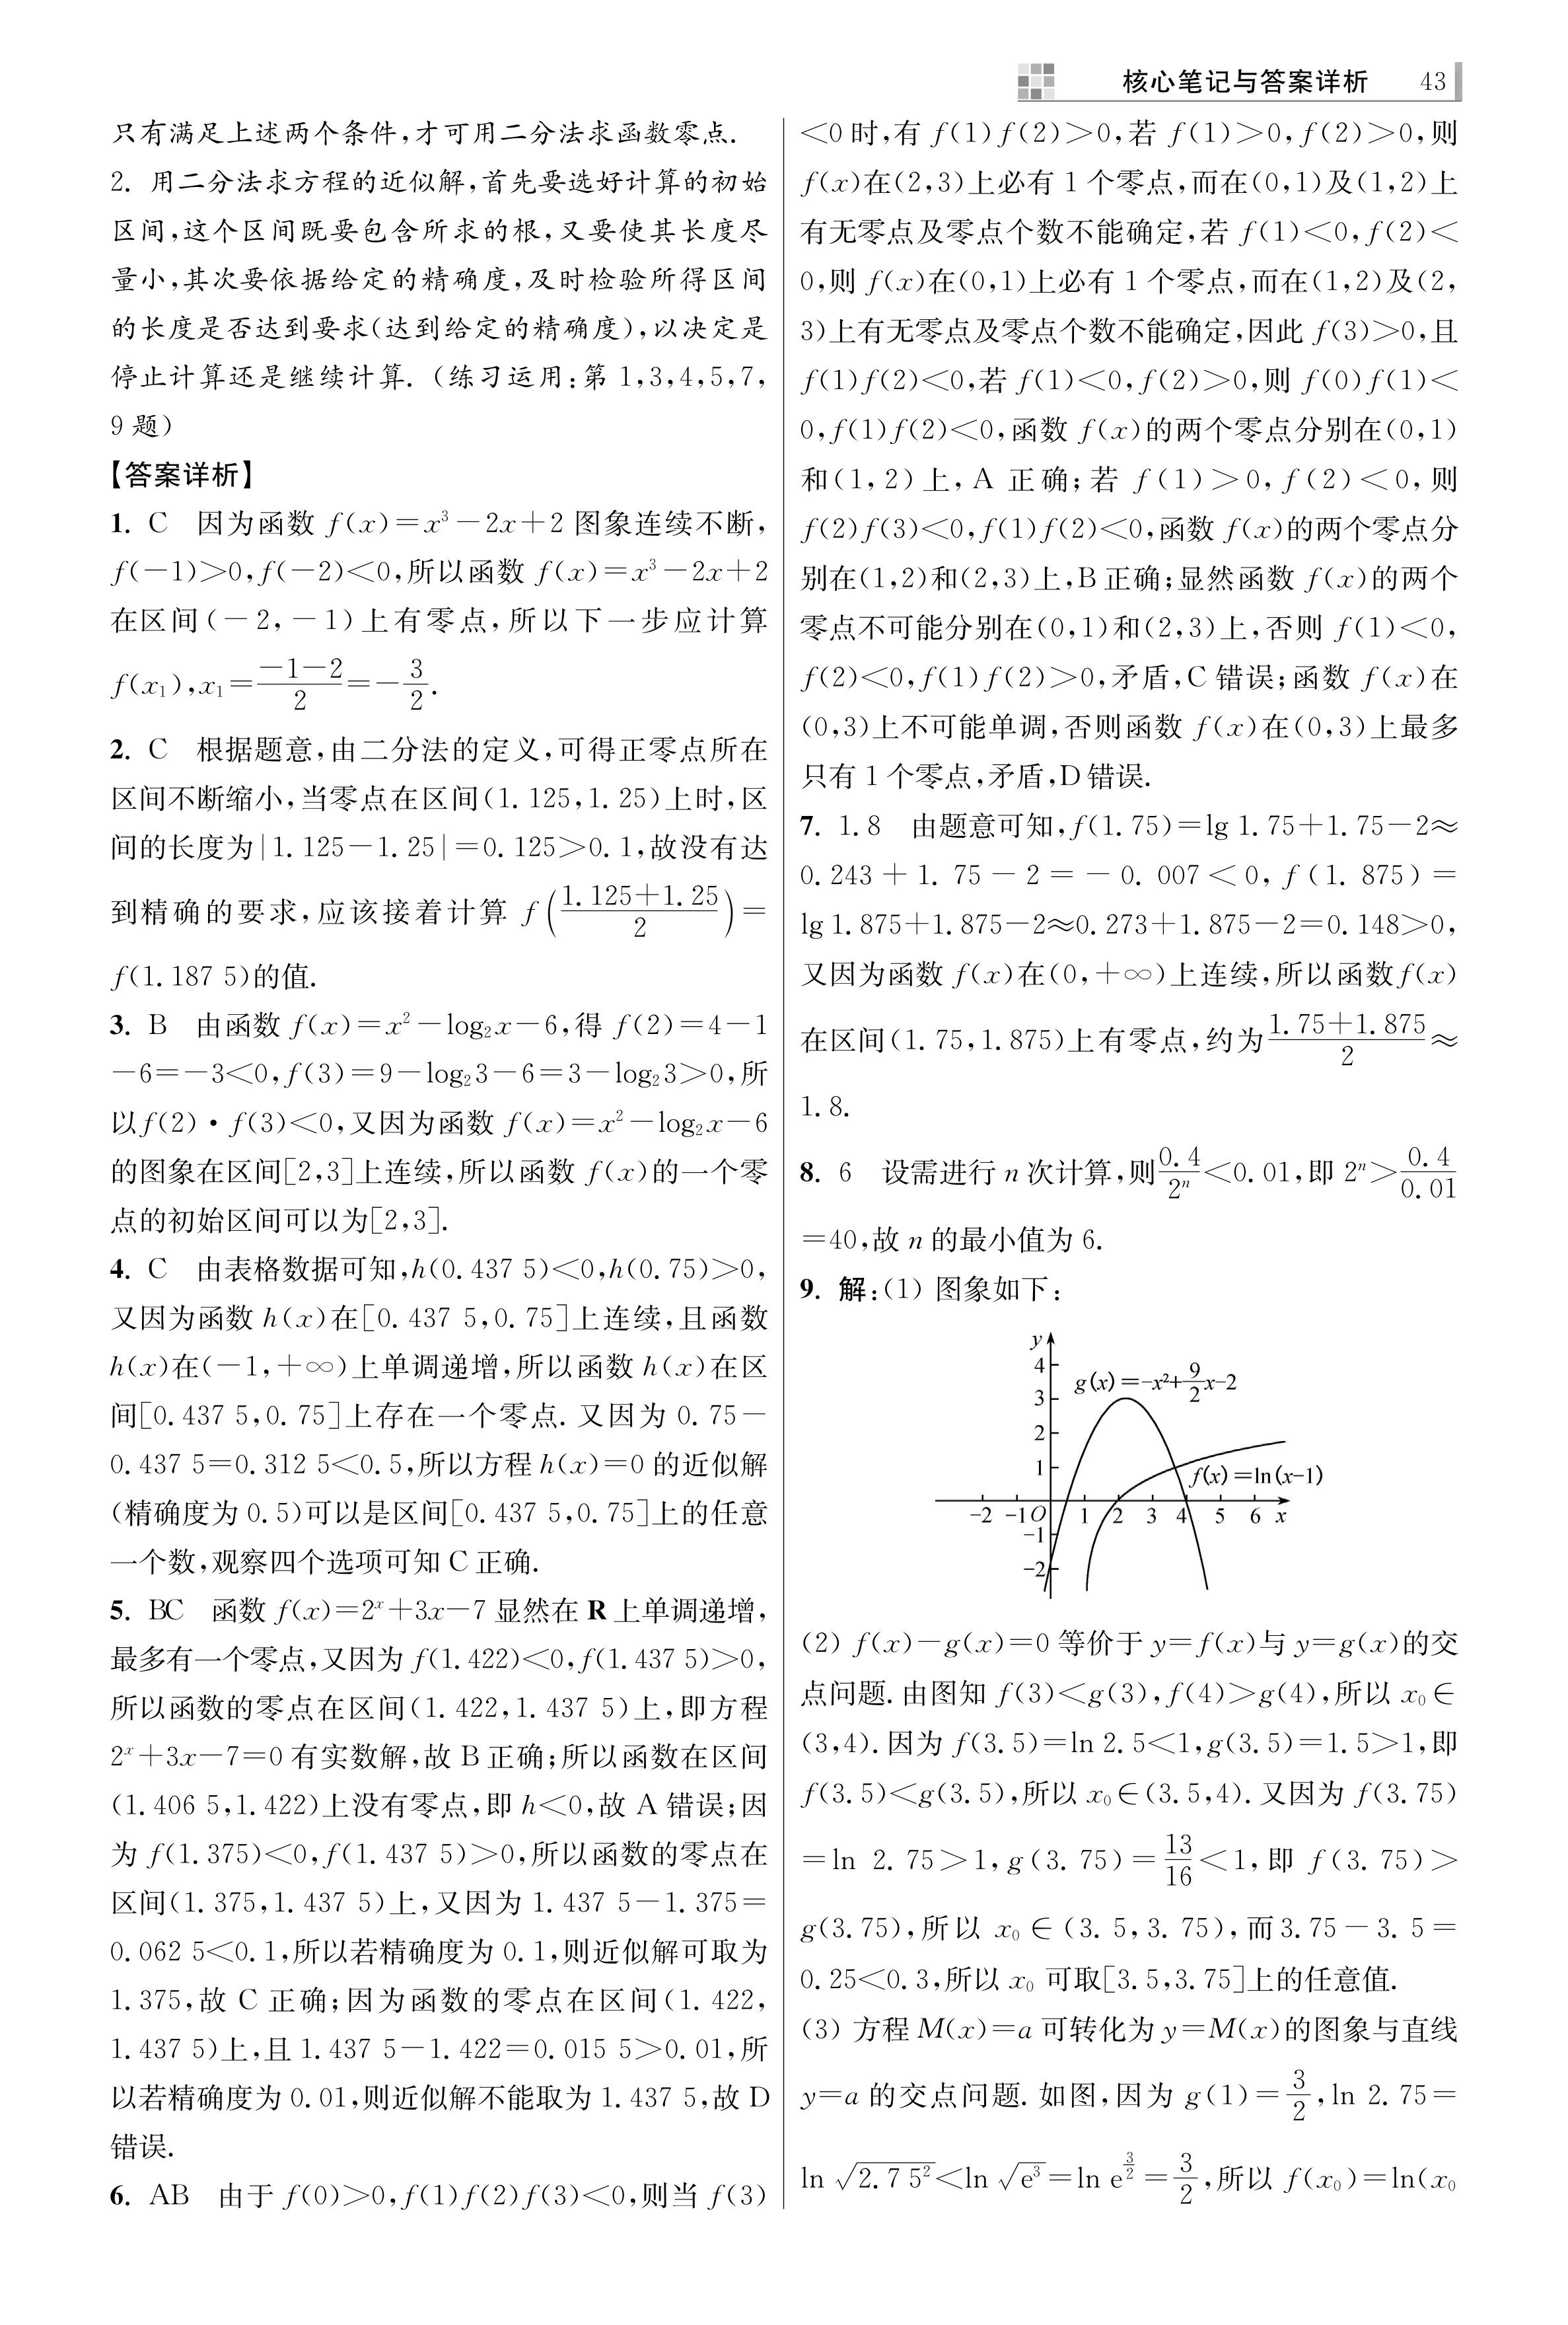 核心笔记与答案详析 43
只有满足上述两个条件,才可用二分法求函数零点.
2. 用二分法求方程的近似解,首先要选好计算的初始
区间,这个区间既要包含所求的根,又要使其长度尽
量小,其次要依据给定的精确度,及时检验所得区间
的长度是否达到要求(达到给定的精确度),以决定是
停止计算还是继续计算.(练习运用:第1,3,4,5,7,
9题)
【答案详析】
1. C 因为函数 f(x)=x³-2x+2 图象连续不断,
f(-1)>0,f(-2)<0,所以函数 f(x)=x³-2x+2
在区间(-2,-1)上有零点,所以下一步应计算
f(x₁),x₁=\frac{-1-2}{2}=-\frac{3}{2}.
2. C 根据题意,由二分法的定义,可得正零点所在
区间不断缩小,当零点在区间(1.125,1.25)上时,区
间的长度为|1.125-1.25|=0.125>0.1,故没有达
到精确的要求,应该接着计算 f(\frac{1.125+1.25}{2})=
f(1.187 5)的值.
3. B 由函数 f(x)=x²-log₂x-6,得 f(2)=4-1
-6=-3<0,f(3)=9-log₂3-6=3-log₂3>0,所
以f(2)·f(3)<0,又因为函数 f(x)=x²-log₂x-6
的图象在区间[2,3]上连续,所以函数 f(x)的一个零
点的初始区间可以为[2,3].
4. C 由表格数据可知,h(0.437 5)<0,h(0.75)>0,
又因为函数 h(x)在[0.437 5,0.75]上连续,且函数
h(x)在(-1,+∞)上单调递增,所以函数 h(x)在区
间[0.437 5,0.75]上存在一个零点.又因为 0.75-
0.437 5=0.312 5<0.5,所以方程h(x)=0的近似解
(精确度为0.5)可以是区间[0.437 5,0.75]上的任意
一个数,观察四个选项可知C正确.
5. BC 函数 f(x)=2ˣ+3x-7显然在R上单调递增,
最多有一个零点,又因为 f(1.422)<0,f(1.437 5)>0,
所以函数的零点在区间(1.422,1.437 5)上,即方程
2ˣ+3x-7=0有实数解,故B正确;所以函数在区间
(1.406 5,1.422)上没有零点,即h<0,故 A 错误;因
为 f(1.375)<0,f(1.437 5)>0,所以函数的零点在
区间(1.375,1.437 5)上,又因为1.437 5-1.375=
0.062 5<0.1,所以若精确度为0.1,则近似解可取为
1.375,故 C 正确;因为函数的零点在区间(1.422,
1.437 5)上,且1.437 5-1.422=0.015 5>0.01,所
以若精确度为0.01,则近似解不能取为1.437 5,故D
错误.
6. AB 由于 f(0)>0,f(1)f(2)f(3)<0,则当 f(3)
<0时,有 f(1)f(2)>0,若 f(1)>0,f(2)>0,则
f(x)在(2,3)上必有1个零点,而在(0,1)及(1,2)上
有无零点及零点个数不能确定,若 f(1)<0,f(2)<
0,则 f(x)在(0,1)上必有1个零点,而在(1,2)及(2,
3)上有无零点及零点个数不能确定,因此 f(3)>0,且
f(1)f(2)<0,若 f(1)<0,f(2)>0,则 f(0)f(1)<
0,f(1)f(2)<0,函数 f(x)的两个零点分别在(0,1)
和(1,2)上,A 正确;若 f(1)>0,f(2)<0,则
f(2)f(3)<0,f(1)f(2)<0,函数 f(x)的两个零点分
别在(1,2)和(2,3)上,B正确;显然函数 f(x)的两个
零点不可能分别在(0,1)和(2,3)上,否则 f(1)<0,
f(2)<0,f(1)f(2)>0,矛盾,C错误;函数 f(x)在
(0,3)上不可能单调,否则函数 f(x)在(0,3)上最多
只有1个零点,矛盾,D错误.
7. 1.8 由题意可知,f(1.75)=lg 1.75+1.75-2≈
0.243+1.75-2=-0.007<0,f(1.875)=
lg 1.875+1.875-2≈0.273+1.875-2=0.148>0,
又因为函数 f(x)在(0,+∞)上连续,所以函数f(x)
在区间(1.75,1.875)上有零点,约为\frac{1.75+1.875}{2}≈
1.8.
8. 6 设需进行 n 次计算,则\frac{0.4}{2ⁿ}<0.01,即 2ⁿ>\frac{0.4}{0.01}
=40,故 n 的最小值为6.
9. 解:(1) 图象如下:
y
4
g(x)=-x²+\frac{9}{2}x-2
3
2
1
f(x)=ln(x-1)
-2 -1 O 1 2 3 4 5 6 x
-1
-2
(2) f(x)-g(x)=0等价于y=f(x)与y=g(x)的交
点问题.由图知 f(3)<g(3),f(4)>g(4),所以 x₀∈
(3,4).因为 f(3.5)=ln 2.5<1,g(3.5)=1.5>1,即
f(3.5)<g(3.5),所以 x₀∈(3.5,4).又因为 f(3.75)
=ln 2.75>1,g(3.75)=\frac{13}{16}<1,即 f(3.75)>
g(3.75),所以 x₀∈(3.5,3.75),而3.75-3.5=
0.25<0.3,所以 x₀ 可取[3.5,3.75]上的任意值.
(3) 方程M(x)=a可转化为y=M(x)的图象与直线
y=a 的交点问题.如图,因为 g(1)=\frac{3}{2},ln 2.75=
ln \sqrt{2.7 5²}<ln \sqrt{e³}=ln e^{\frac{3}{2}}=\frac{3}{2},所以 f(x₀)=ln(x₀